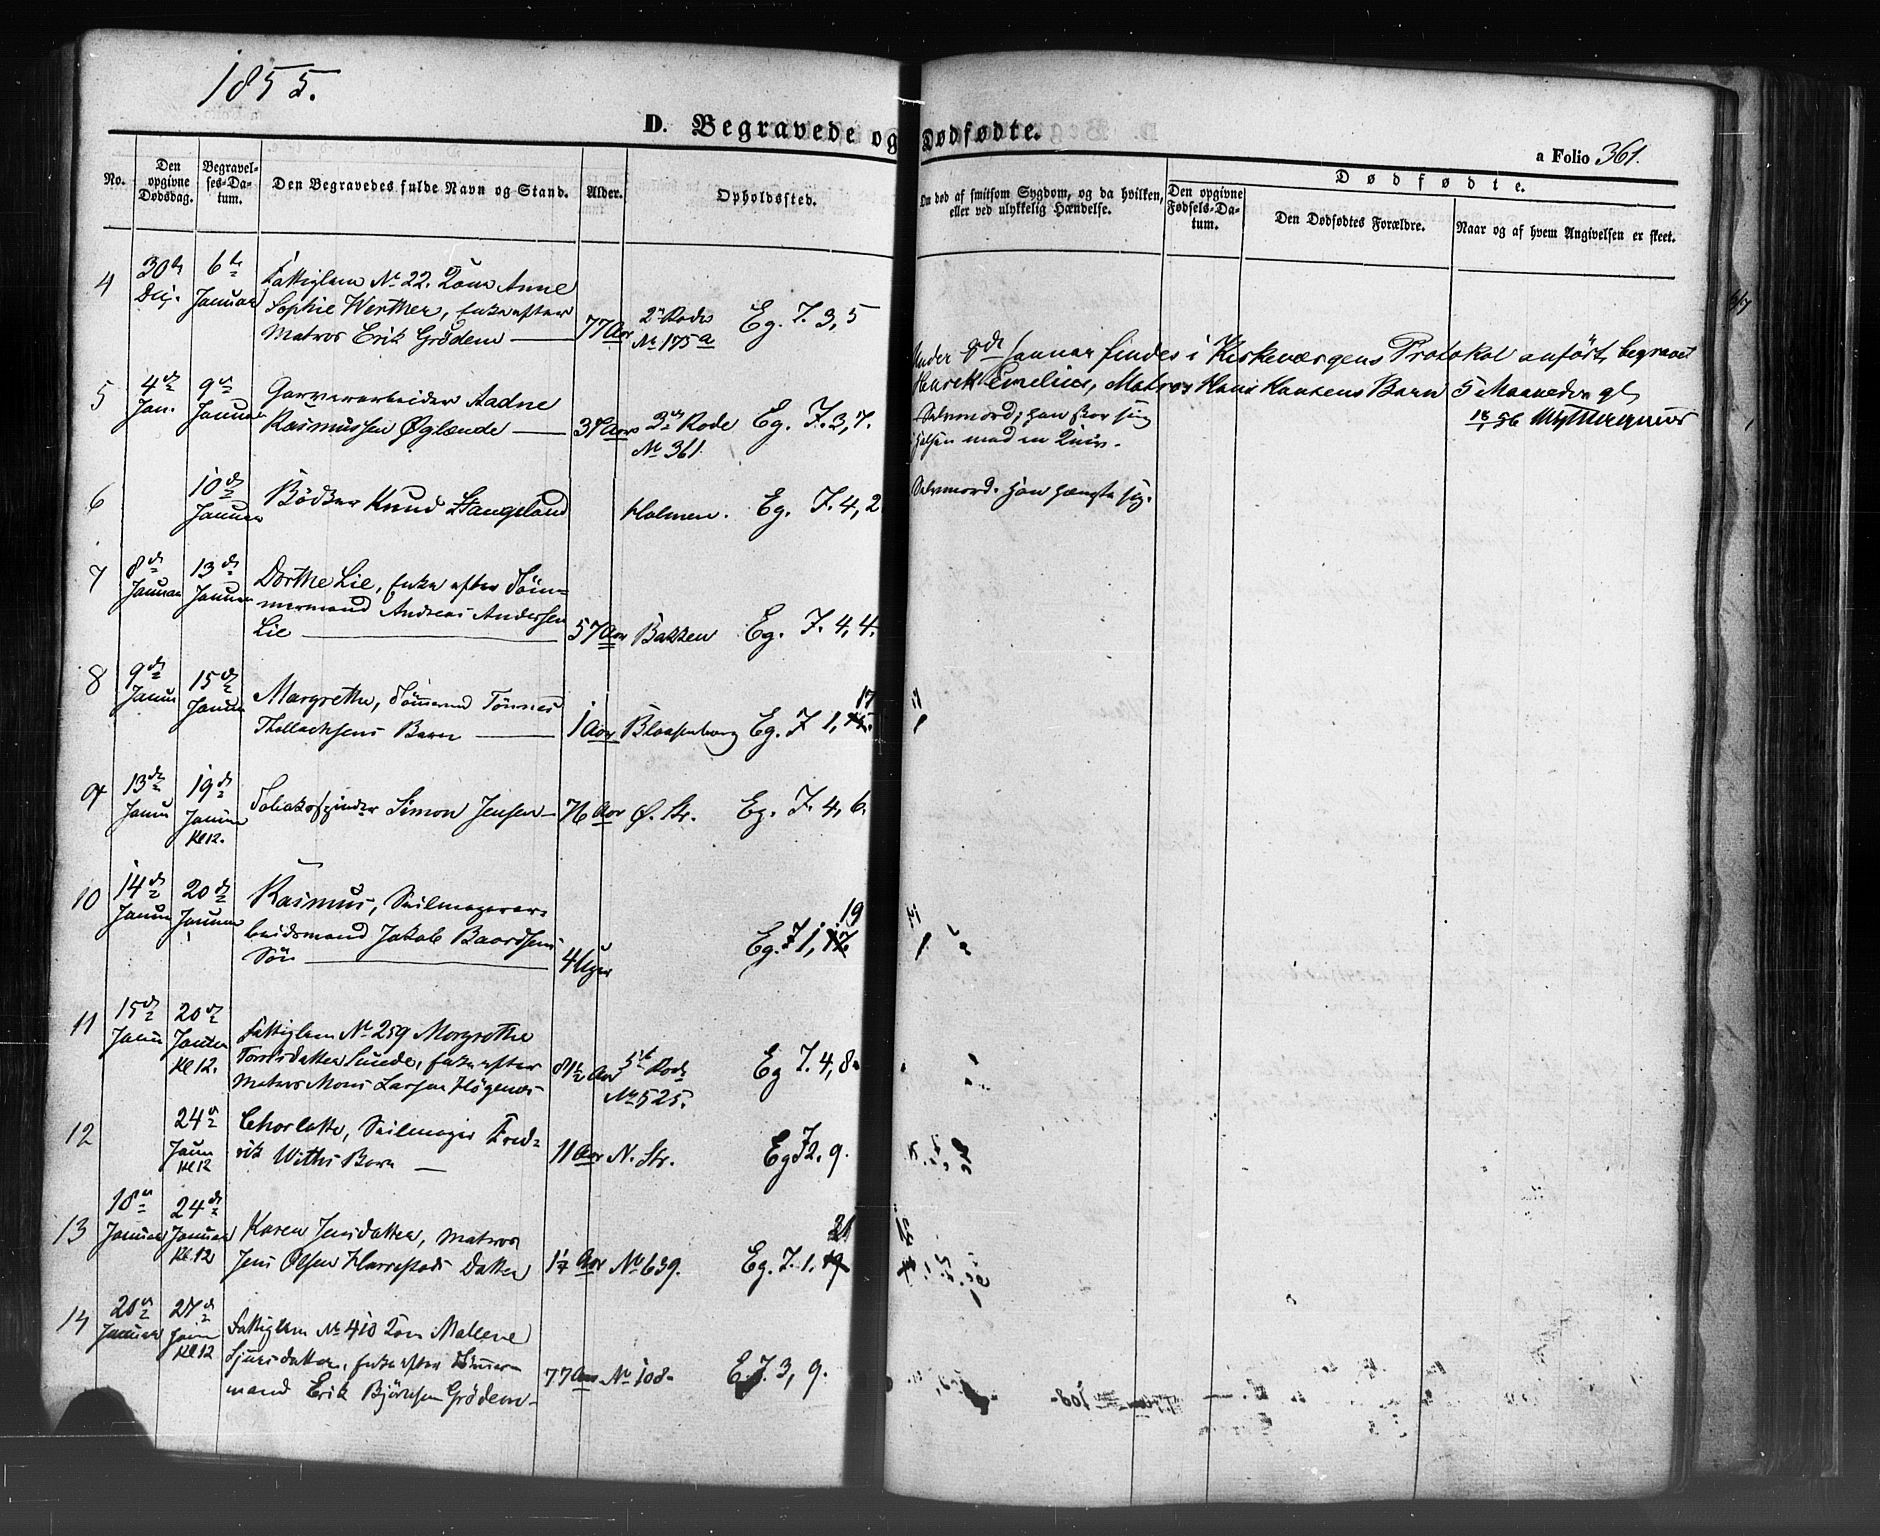 1855.
D. Begravede og Dødfødte.
a Folio 361.
No.
Den opgivne Dødsdag.
Begravelses-Datum.
Den Begravedes fulde Navn og Stand.
Alder.
Opholdssted.
Om død af smitsom Sygdom, og da hvilken,
eller ved ulykkelig Hændelse.
Dødfødte.
Den opgivne Fødsels-Datum.
Den Dødfødtes Forældre.
Naar og af hvem Angivelsen er skeet.
4 30te Dec. 6te Januar Fattiglem No 22. Anne
Sophie Werther, Enke efter
Matros Erik Grödem 77 Aar 2n Rode No 175a Eg. F. 3, 5
Under 9de Januar findes i Kirkeværgens Protokol anført, begravet
Emelius, Matros Hans Hansens Barn 5 Maaneder gl
5 4de Jan. 9de Januar Garverarbeider Aadne
Rasmussen Øglænde Aar 3die Rode No 361. Eg. F. 3, 7.
Selvmord; han skar sig
i Halsen med en Kniv.
6 10de Januar Bödker Knud Stangeland Holmen. Eg. F. 4, 2
Selvmord. Han hængte sig.
7 8de Januar 13de Januar Dorthe Lie, Enke efter Töm-
mermand Andreas Andersen
Lie 57 Aar Bakken Eg. F. 4, 4.
8 9de Januar 15de Januar Margrethe, Tömmermd Tönnes
Thollachsens Barn 1 Aar Blaasenborg Eg. F 1, 17
9 13de Januar 19de Januar Kl 12. Tobakspinder Simon Jensen 76 Aar Ø. Str. Eg. F. 4, 6.
10 14de Januar 20de Januar Rasmus, Seilmagerar-
beidsmand Jakob Baardsens
Sön 4 Uger Eg. F 1, 19
11 15de Januar 20de Januar Kl 12. Fattiglem No 259 Margrethe
Torrisdatter Sunde, Enke efter
Matros Mons Larsen Högenes Aar 5te Rode No 525. Eg F. 4, 8.
12 24de Januar Kl 12 Charlotte, Seilmager Fred-
rik Withs Barn 11 Aar N. Str. Eg F 2. 9.
13 18de Januar 24de Januar Kl. 12 Karen Jensdatter, Matros
Jens Olsen Harrestads Datter Aar No 639. Eg. F. 1. 21
14 20de Januar 27de Januar Kl 12 Fattiglem No 410 Malene
Sjursdatter, Enke efter Tömmer-
mand Erik Björnsen Grödem 77 Aar No 108 E. F. 3, 9.